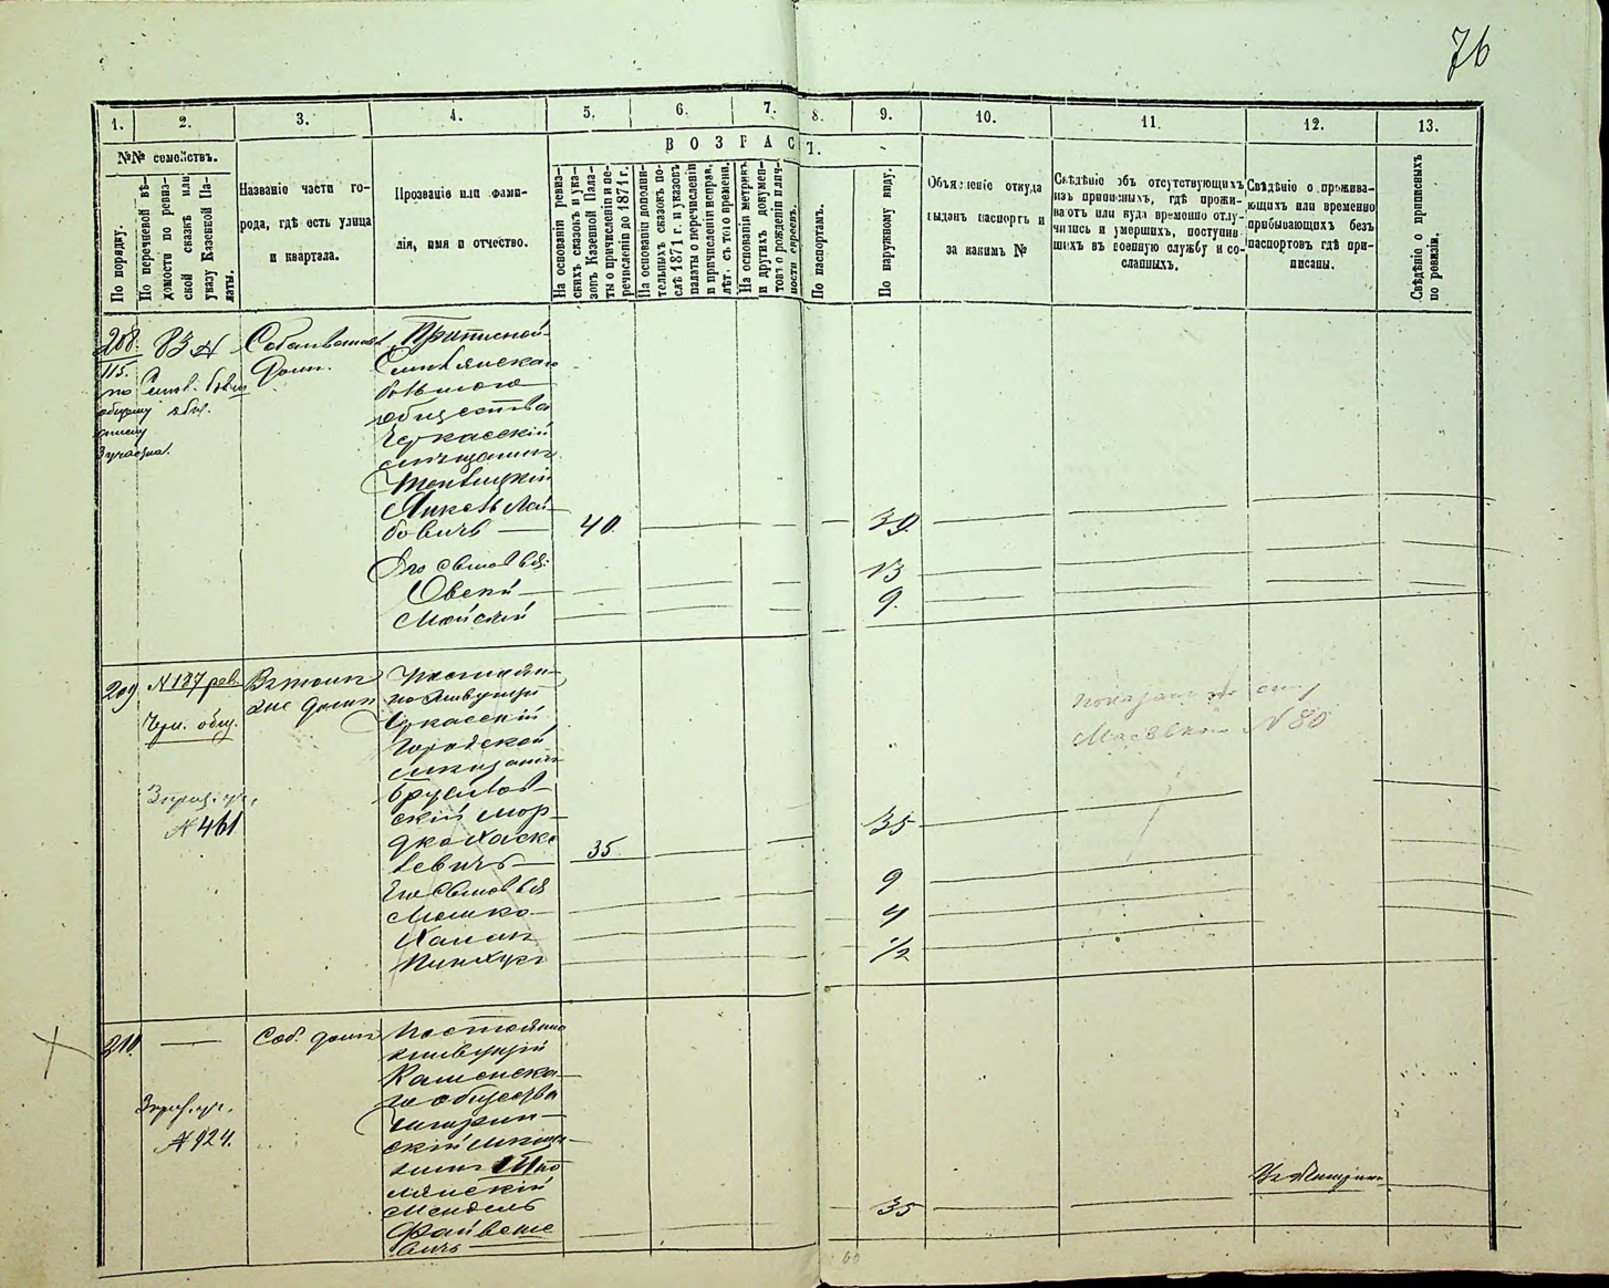 76
1. 2. 3. 4. 5. 6. 7. 8. 9. 10. 11. 12. 13.
№№ семействъ.
По порядку.
По перечневой вѣ-
домости по ревиз-
ской сказкѣ или
указу Казенной Па-
латы.
Названіе части го-
рода, гдѣ есть улица
и квартала.
Прозваніе или фами-
лія, имя и отчество.
ВОЗРАСТ.
На основаніи ревиз-
скихъ сказокъ и ука-
зовъ Казенной Пала-
ты о причисленіи и пе-
речисленіи до 1871 г.
На основаніи дополни-
тельныхъ сказокъ по-
слѣ 1871 г. и указовъ
палаты о перечисленіи
и причисленіи неправ.
лѣт. съ того времени.
На основаніи метрикъ
и другихъ докумен-
товъ о рожденіи и лич-
ности евреевъ.
По паспортамъ.
По наружному виду.
Объясненіе откуда
выданъ паспортъ и
за какимъ №
Свѣдѣніе объ отсутствующихъ
изъ приписныхъ, гдѣ прожи-
ваютъ или куда временно отлу-
чились и умершихъ, поступив-
шихъ въ военную службу и со-
сланныхъ.
Свѣдѣніе о прожива-
ющихъ или временно
прибывающихъ безъ
паспортовъ гдѣ при-
писаны.
Свѣдѣніе о приписныхъ
по ревизіи.
208.
115.
по
общему
списку
3 участка.
83 А
общ.
Собственный
домъ.
Приписной
общества
Черкасскій
мѣщанинъ
Янкель Лей-
бовичъ — 40. 39.
Его сыновья:
Овсей — 13
Мойсей 9.
209 N 187 рев.
Черк. общ.
N 461
домъ
Постоян-
но живущій
Черкасскій
Городской
мѣщанинъ
Бруслов-
скій Мор-
дко Хаске-
левичъ — 35 35
Его сыновья
Мошко — 9
Хаимъ 4
Пинхусъ 1/2
N 80
210. —
N 924.
Соб. домъ
Постоянно
живущій
Каменска-
го общества
Чигирин-
скій мѣща-
нинъ Шпо-
лянскій
Мендель 35
Файвеле-
вичъ —
60